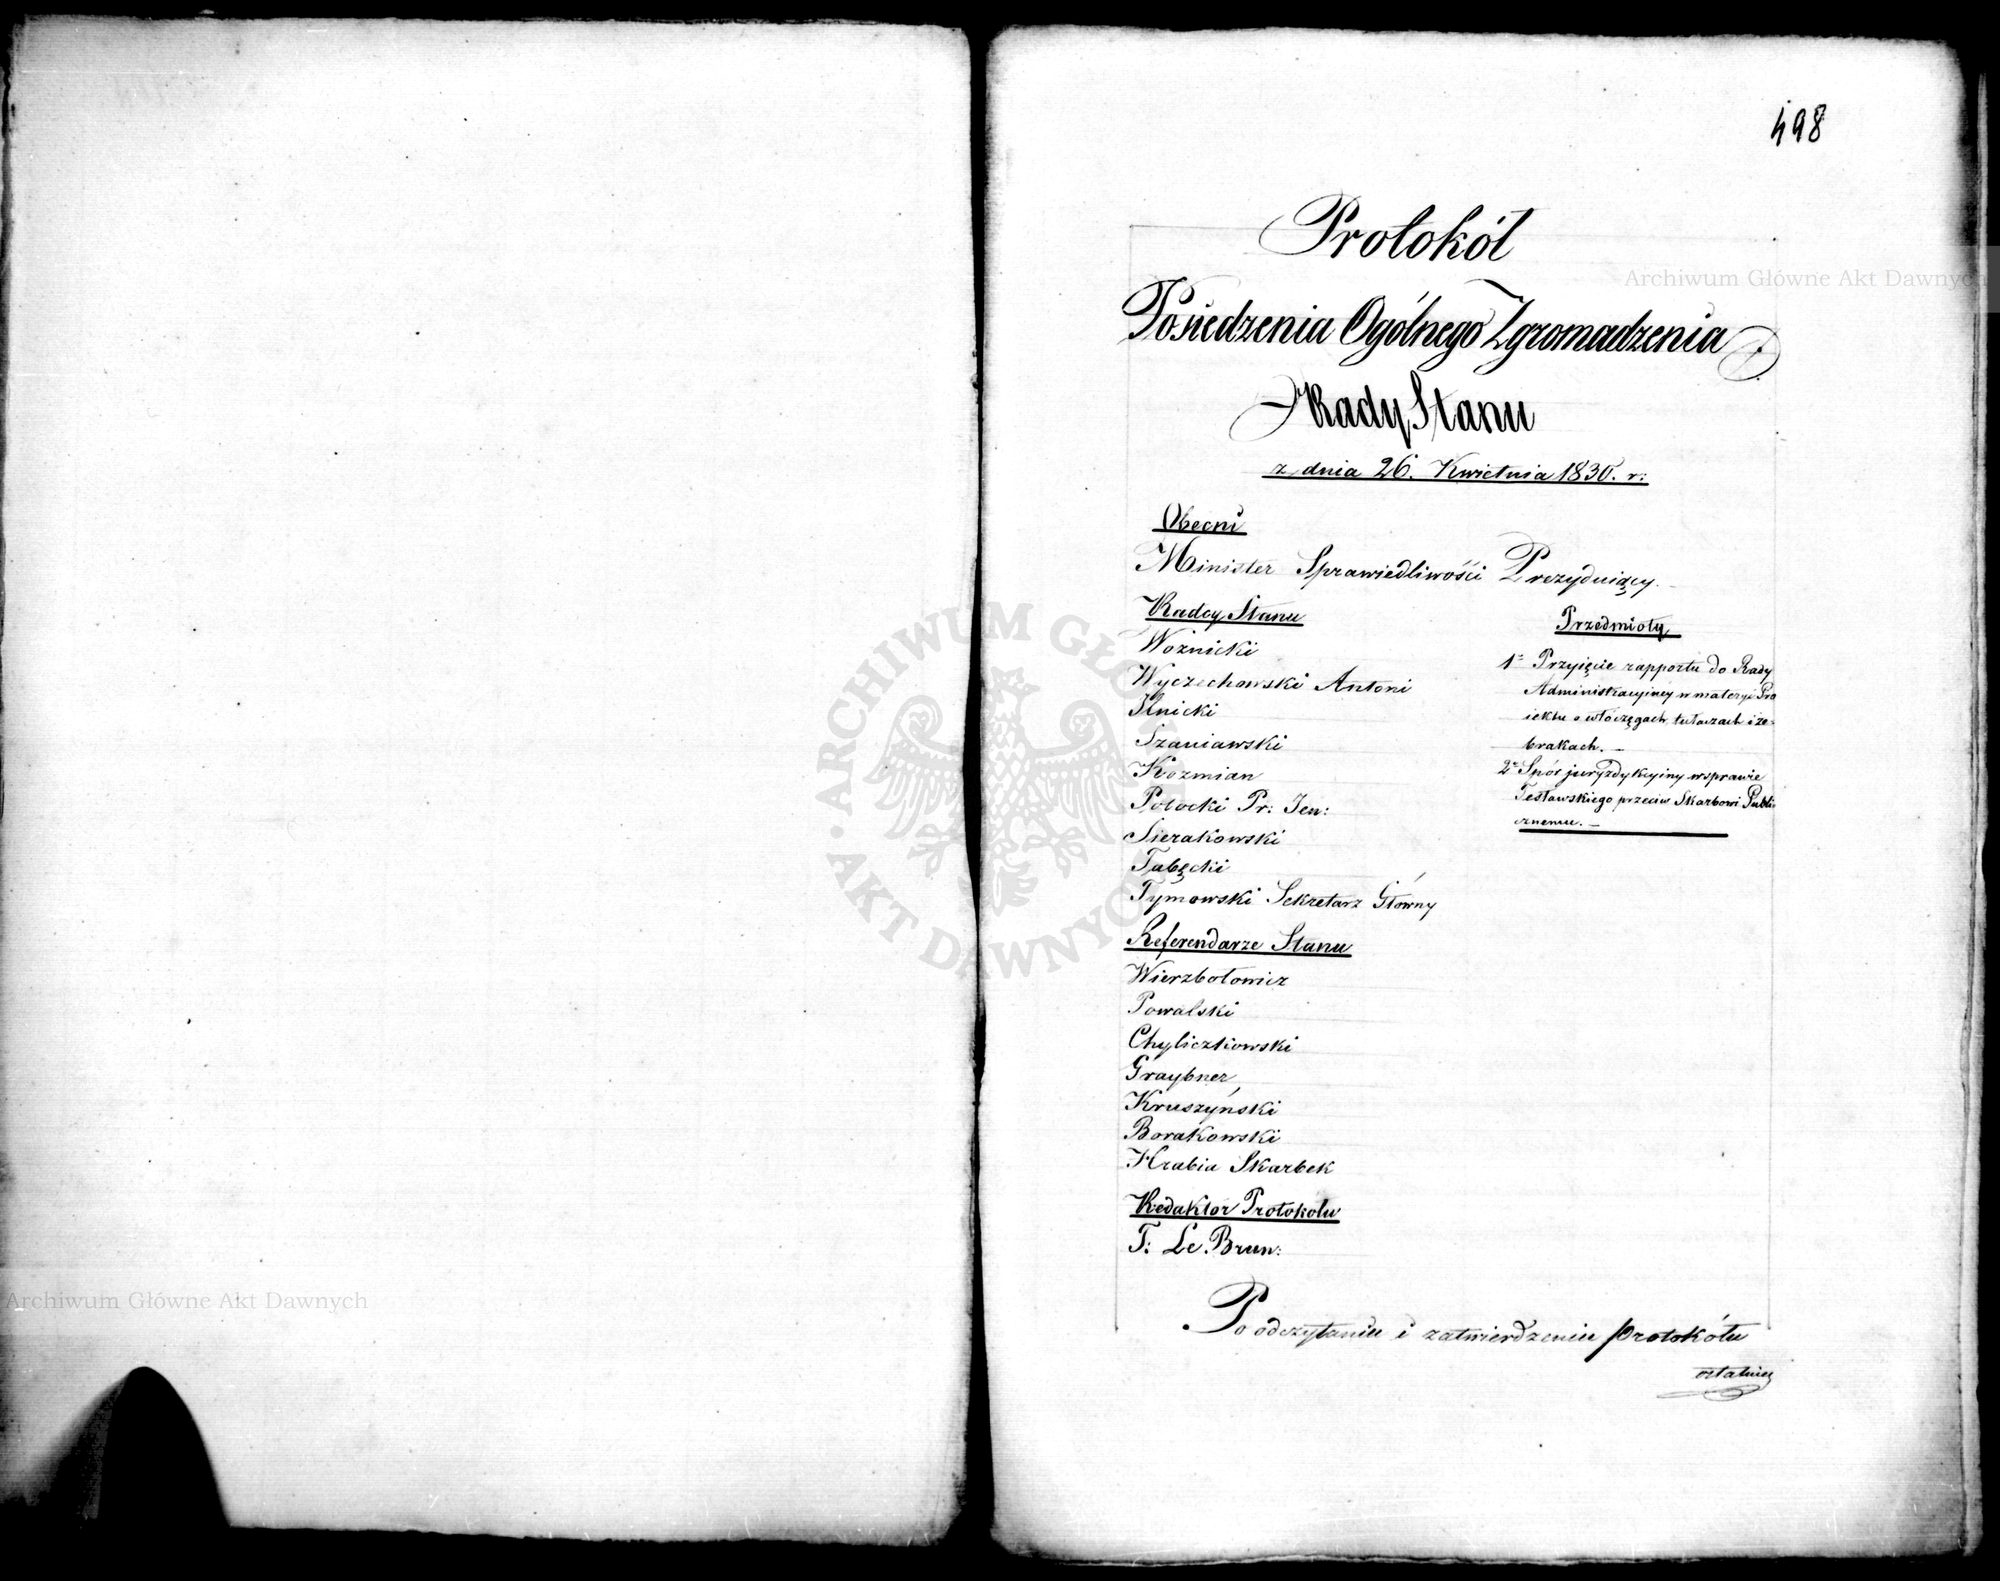 498
Protokół
Posiedzenia Ogólnego Zgromadzenia
Rady Stanu
z dnia 26. Kwietnia 1830. r:
Obecni
Minister Sprawiedliwości Prezydujący.
Radcy Stanu
Woźnicki
Wyczechowski Antoni
Ilnicki
Szaniawski
Kozmian
Potocki Pr: Jen:
Sierakowski
Tabęcki
Tymowski Sekretarz Główny
Referendarze Stanu
Wierzbołowicz
Powalski
Chyliczkowski
Graybner
Kruszyński
Borakowski
Hrabia Skarbek
Redaktor Protokółu
T: Le. Brun:
Przedmioty
1° Przyięcie rapportu do Rady
Administracyiney w materyi Pro
iektu o włóczęgach, tułaczach i że-
brakach. —
2° Spór juryzdykcyiny w sprawie
Testawskiego przeciw Skarbowi Publi
cznemu. —
Po odczytaniu i zatwierdzeniu protokółu
ostatniey
Archiwum Główne Akt Dawnych
Archiwum Główne Akt Dawnych
ARCHIWUM GŁÓWNE
AKT DAWNYCH